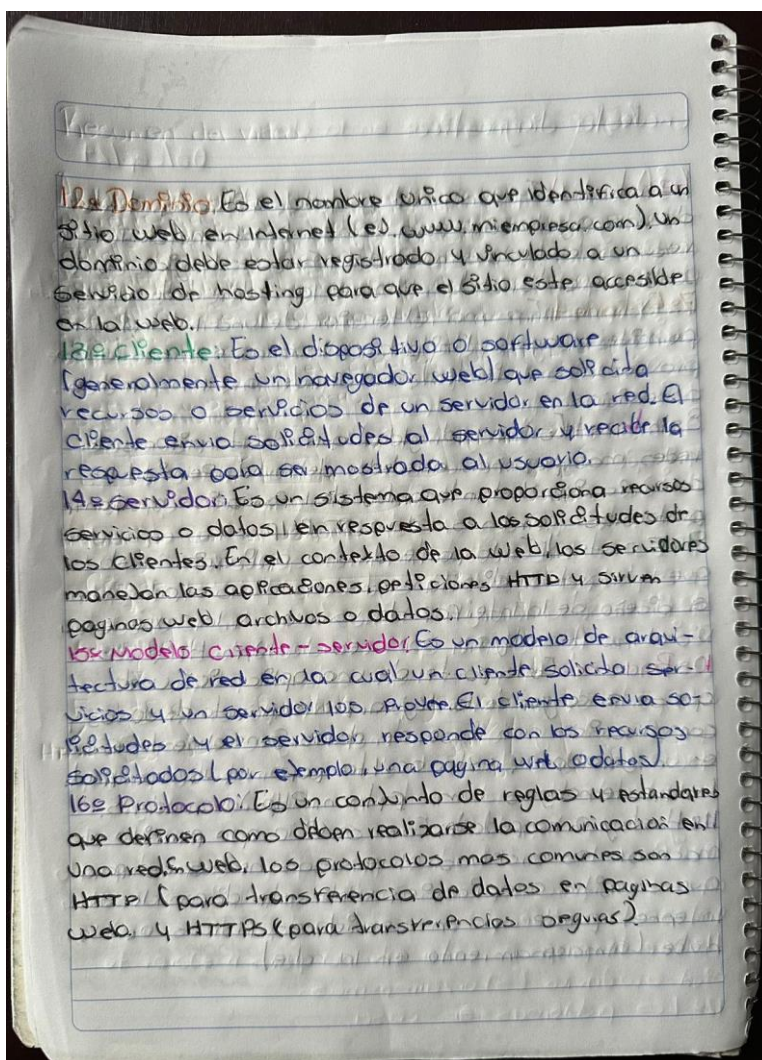 12º Dominio: Es el nombre unico que identifica a un
sitio web en internet (ej. www.miempresa.com). Un
dominio debe estar registrado y vinculado a un
servicio de hosting para que el sitio este accesible
en la web.
13º Cliente: Es el dispositivo o software
(generalmente un navegador web) que solicita
recursos o servicios de un servidor en la red. El
cliente envia solicitudes al servidor y recibe la
respuesta para ser mostrada al usuario.
14º Servidor: Es un sistema que proporciona recursos
servicios o datos en respuesta a las solicitudes de
los clientes. En el contexto de la web, los servidores
manejan las aplicaciones, peticiones HTTP y sirven
paginas web, archivos o datos.
15º Modelo cliente-servidor: Es un modelo de arqui-
tectura de red en la cual un cliente solicita ser-
vicios y un servidor los provee. El cliente envia so-
licitudes y el servidor responde con los recursos
solicitados (por ejemplo, una pagina web o datos).
16º Protocolo: Es un conjunto de reglas y estandares
que definen como deben realizarse la comunicacion en
una red. En web, los protocolos mas comunes son
HTTP (para transferencia de datos en paginas
web, y HTTPS (para transferencias seguras).